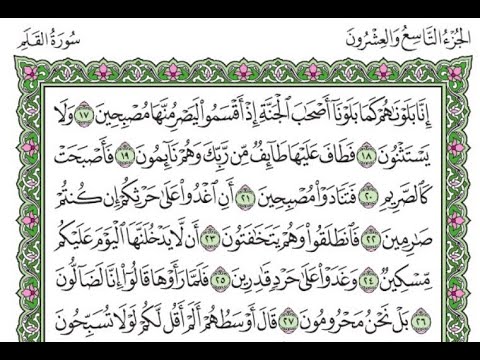 الجُزْءُ التَّاسِعُ وَالعِشْرُونَ
سُورَةُ القَلَمِ
إِنَّا بَلَوْنَاهُمْ كَمَا بَلَوْنَا أَصْحَابَ الْجَنَّةِ إِذْ أَقْسَمُوا لَيَصْرِمُنَّهَا مُصْبِحِينَ ١٧ وَلَا
يَسْتَثْنُونَ ١٨ فَطَافَ عَلَيْهَا طَائِفٌ مِّن رَّبِّكَ وَهُمْ نَائِمُونَ ١٩ فَأَصْبَحَتْ
كَالصَّرِيمِ ٢٠ فَتَنَادَوْا مُصْبِحِينَ ٢١ أَنِ اغْدُوا عَلَىٰ حَرْثِكُمْ إِن كُنتُمْ
صَارِمِينَ ٢٢ فَانطَلَقُوا وَهُمْ يَتَخَافَتُونَ ٢٣ أَن لَّا يَدْخُلَنَّهَا الْيَوْمَ عَلَيْكُم
مِّسْكِينٌ ٢٤ وَغَدَوْا عَلَىٰ حَرْدٍ قَادِرِينَ ٢٥ فَلَمَّا رَأَوْهَا قَالُوا إِنَّا لَضَالُّونَ
٢٦ بَلْ نَحْنُ مَحْرُومُونَ ٢٧ قَالَ أَوْسَطُهُمْ أَلَمْ أَقُل لَّكُمْ لَوْلَا تُسَبِّحُونَ